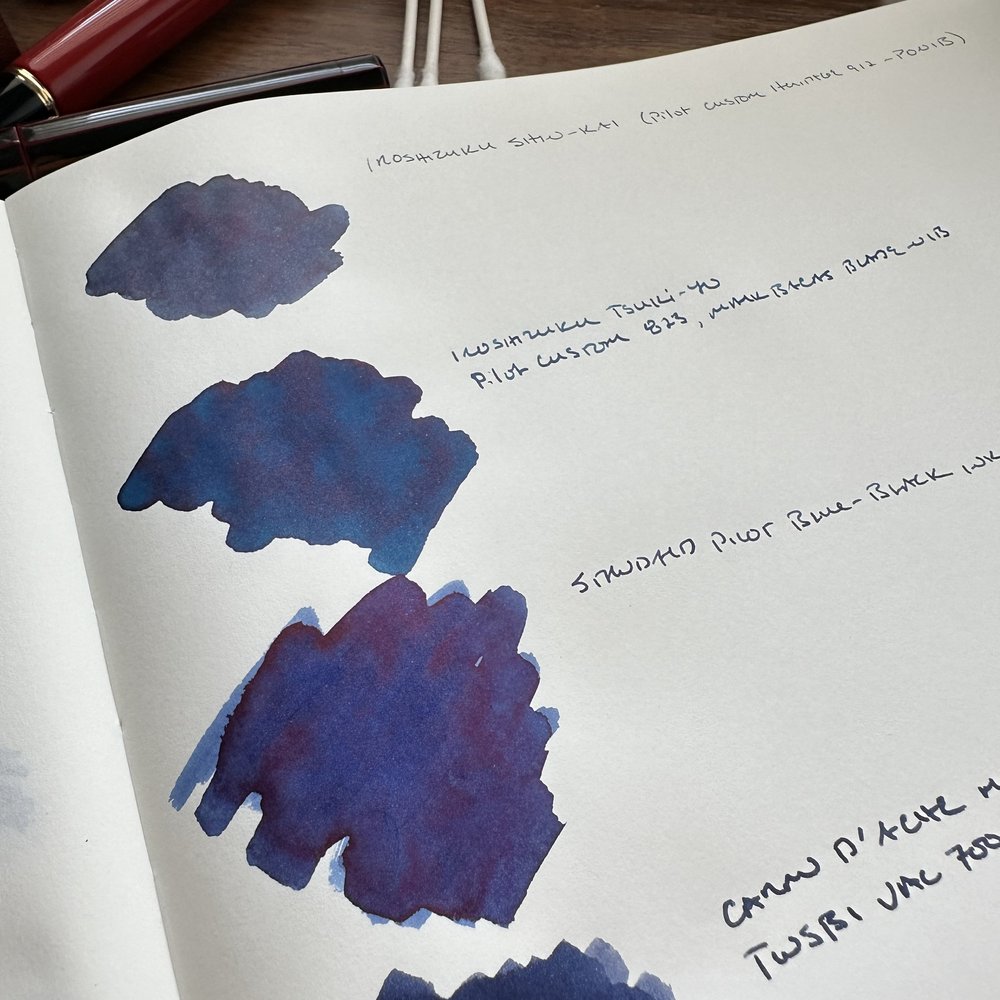 IROSHIZUKU SHIN-KAI (Pilot Custom Heritage 912 - PO NIB)
IROSHIZUKU TSUKI-YO
Pilot Custom 823, MARK BACAS BLADE NIB
STANDARD PILOT Blue-BLACK INK
CARAN D'ACHE M
TWSBI VAC 700